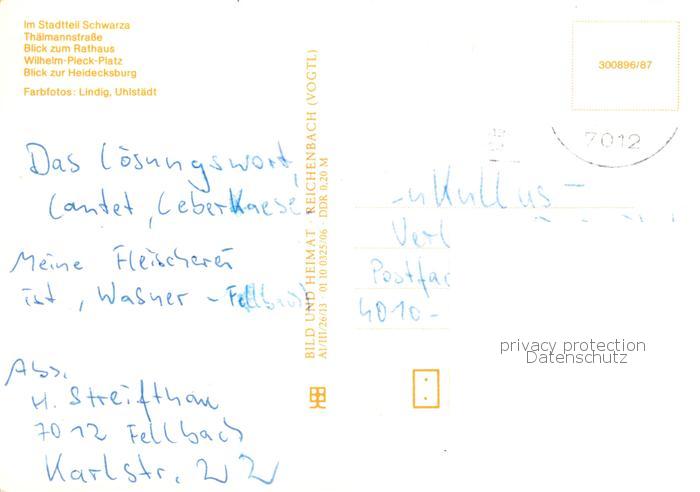 Im Stadtteil Schwarza
Thälmannstraße
Blick zum Rathaus
Wilhelm-Pieck-Platz
Blick zur Heidecksburg
Farbfotos: Lindig, Uhlstädt
Das Lösungswort,
lautet, Leberkaese.
Meine Fleischerei
ist, Wasner - Fellbach
Abs.
H. Streifthau
7012 Fellbach
Karlstr. 22
BILD UND HEIMAT REICHENBACH (VOGTL)
A1/III/26/13 · 01 10 0325/06 · DDR 0,20 M
300896/87
7012
Verl
Postfac
4010-
privacy protection
Datenschutz